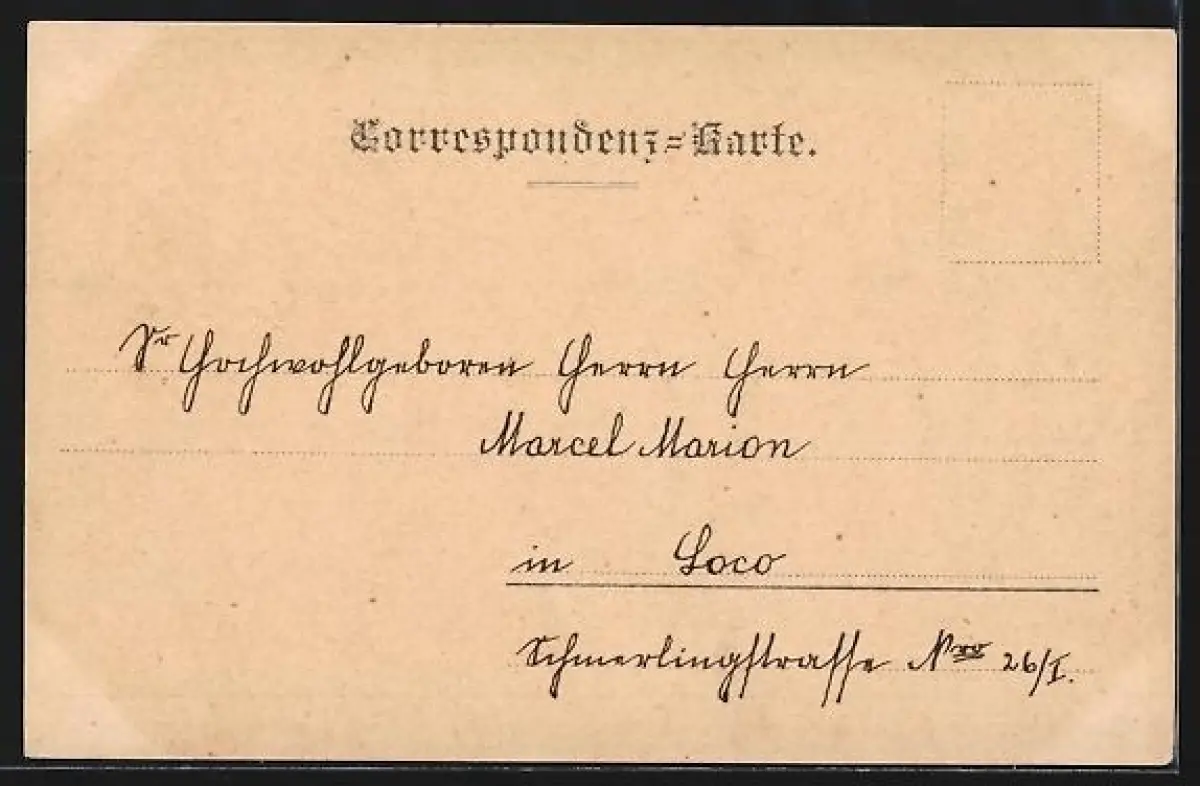 Correspondenz-Karte.
Sr Hochwohlgeboren Herrn Herrn
Marcel Marion
in Loco
Schmerlingstrasse Nro 26/I.